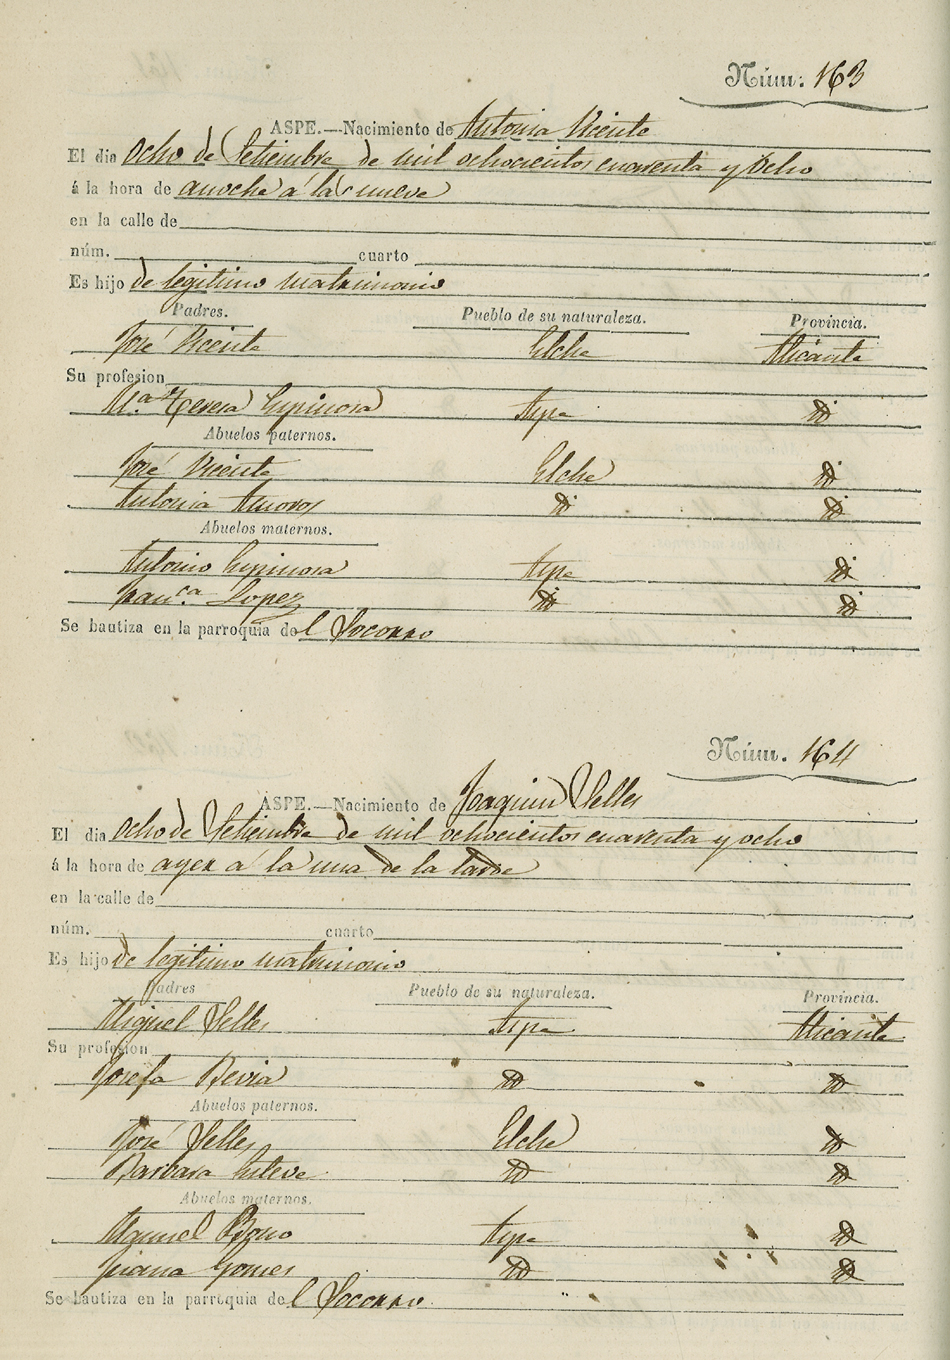 Núm: 163
ASPE.—Nacimiento de Antonia Vicente
El dia ocho de Setiembre de mil ochocientos cuarenta y ocho
á la hora de anoche a las nueve
en la calle de
núm. cuarto
Es hijo de legitimo matrimonio
Padres. Pueblo de su naturaleza. Provincia.
José Vicente Elche Alicante
Su profesion
M.ª Teresa Espinosa Aspe id
Abuelos paternos.
José Vicente Elche id
Antonia Amoros id id
Abuelos maternos.
Antonio Espinosa Aspe id
Fran.ca Lopez id id
Se bautiza en la parroquia del Socorro
Núm. 164
ASPE.—Nacimiento de Joaquin Selles
El dia ocho de Setiembre de mil ochocientos cuarenta y ocho
á la hora de ayer a la una de la tarde
en la calle de
núm. cuarto
Es hijo de legitimo matrimonio
Padres Pueblo de su naturaleza. Provincia.
Miguel Selles Aspe Alicante
Su profesion
Josefa id id
Abuelos paternos.
José Selles Elche id
Barbara Esteve id id
Abuelos maternos.
Manuel Aspe id
Juana Gomes id id
Se bautiza en la parroquia del Socorro